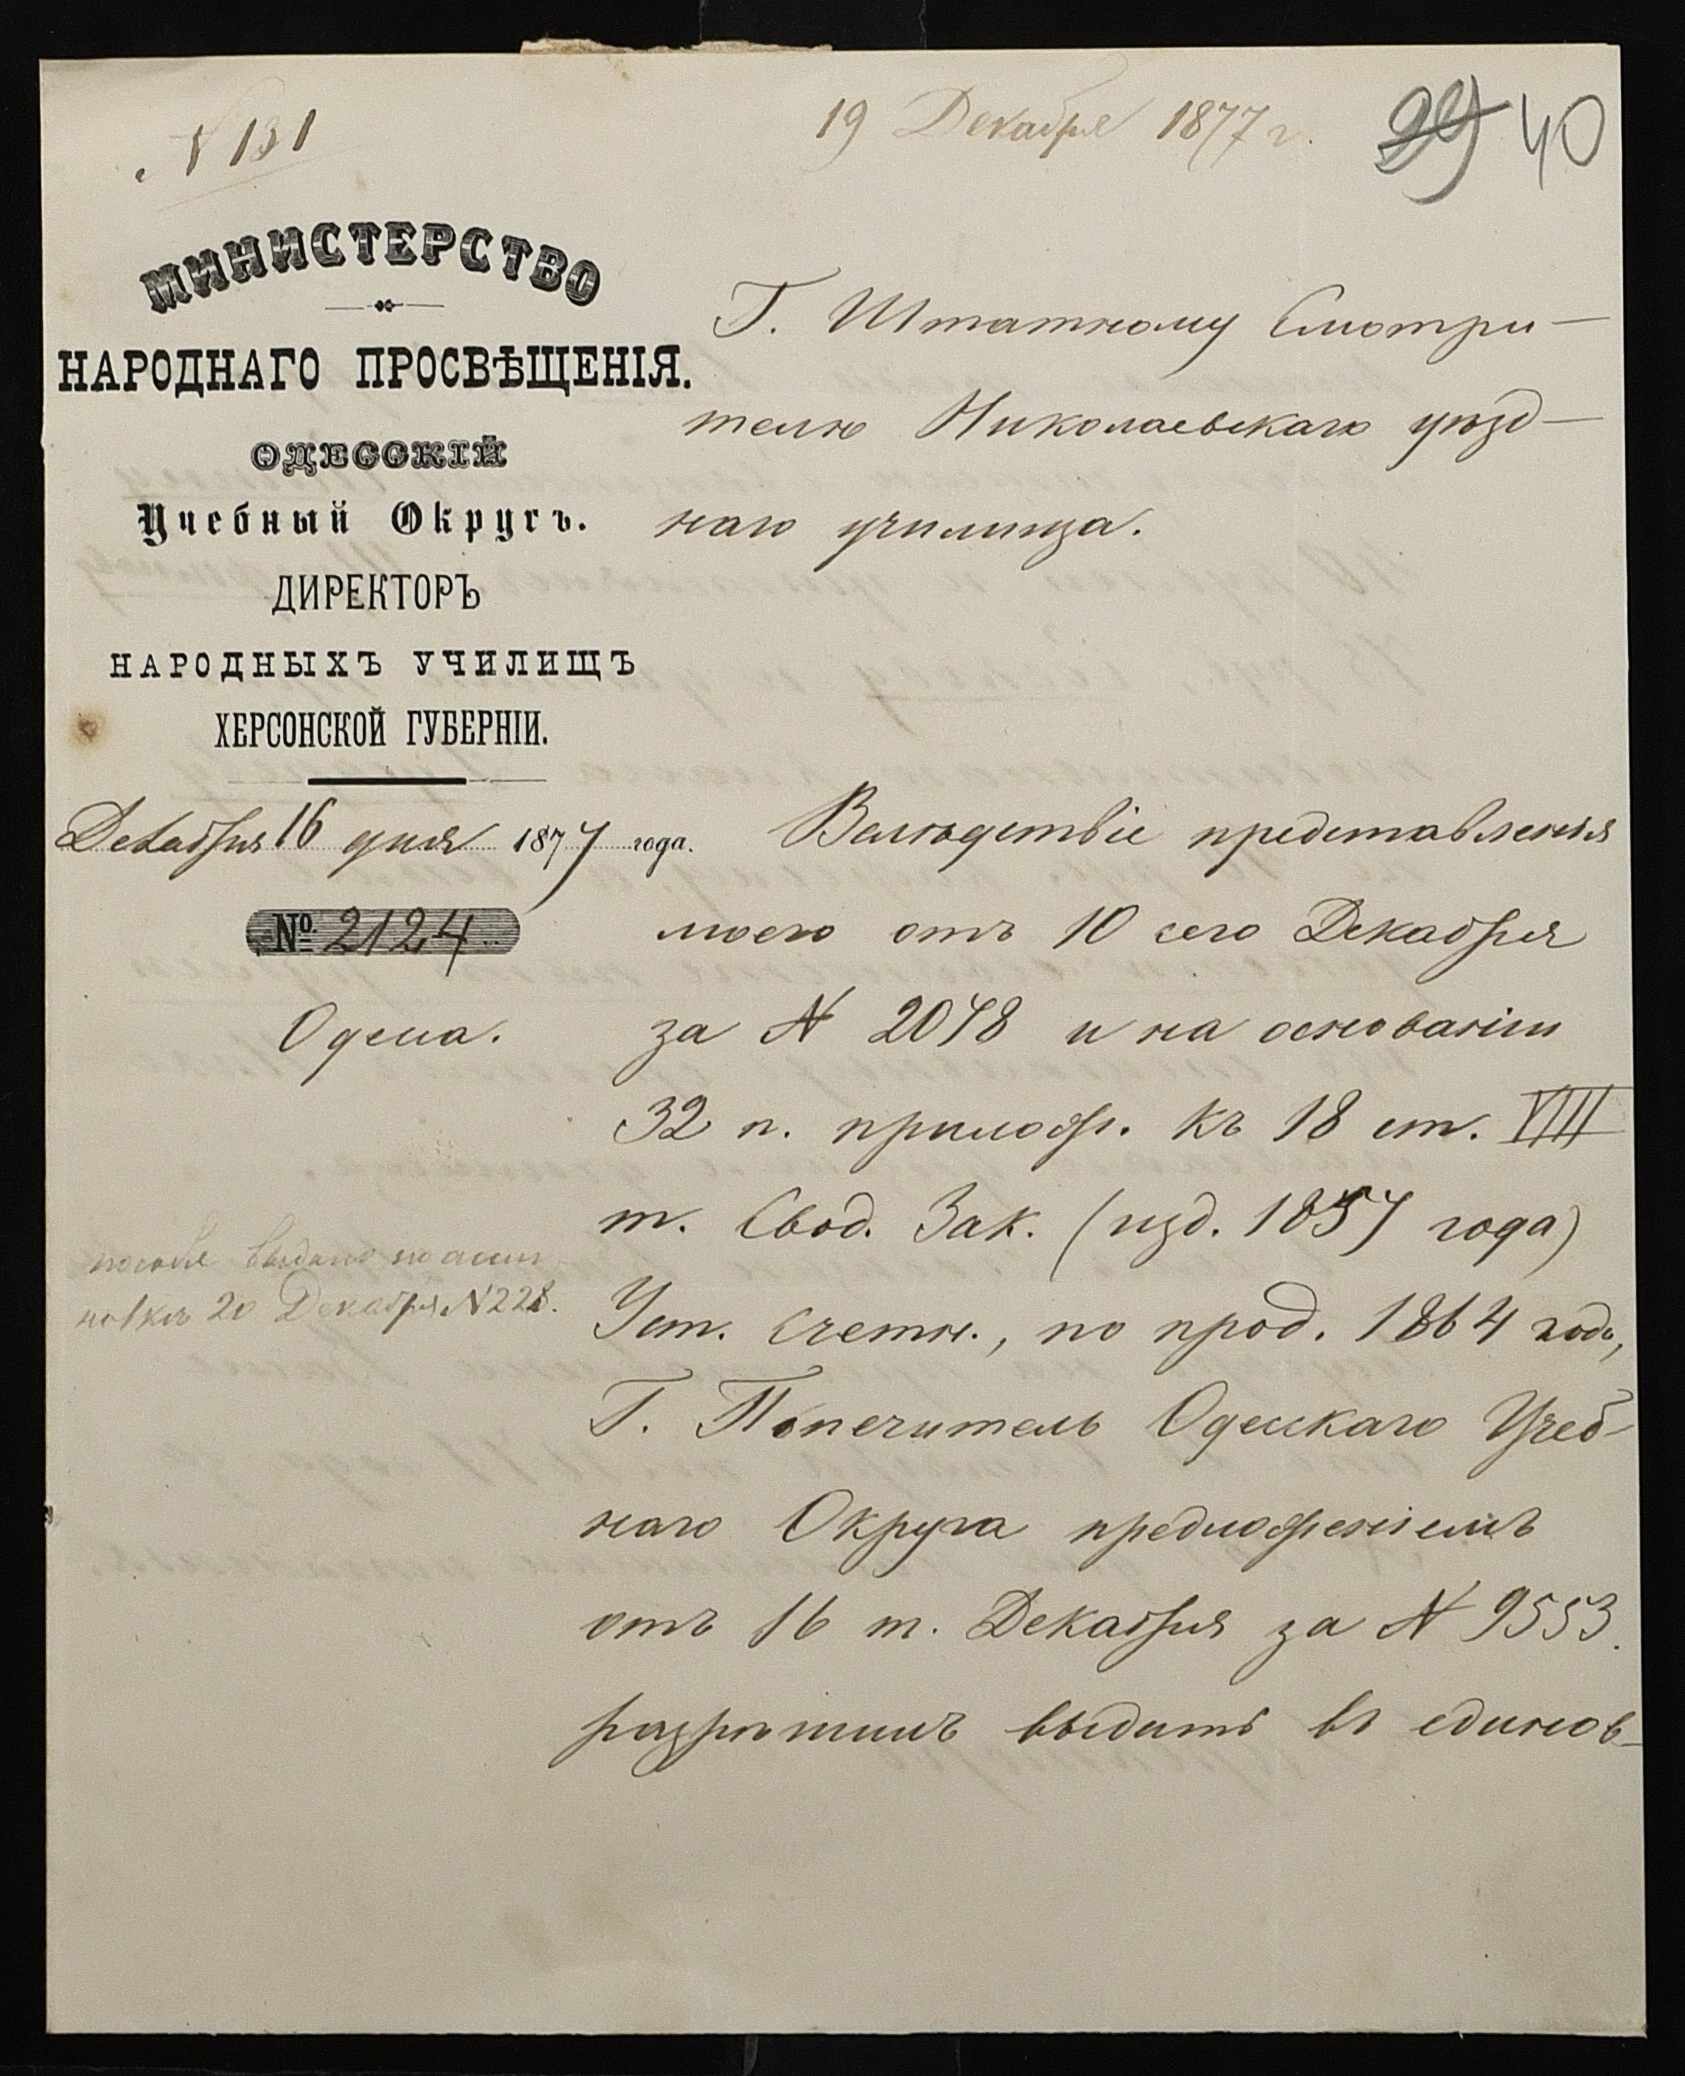 № 131
19 Декабря 1877 г.
39 40
МИНИСТЕРСТВО
НАРОДНАГО ПРОСВѢЩЕНІЯ.
ОДЕССКІЙ
Учебный Округъ.
ДИРЕКТОРЪ
НАРОДНЫХЪ УЧИЛИЩЪ
ХЕРСОНСКОЙ ГУБЕРНІИ.
Декабря 16 дня 1877 года.
№ 2124
Одесса.
Г. Штатному Смотри-
телю Николаевскаго уѣзд-
наго училища.
Вслѣдствіе представленія
моего отъ 10 сего Декабря
за № 2078 и на основаніи
32 п. прилож. къ 18 ст. VIII
т. Свод. Зак. (изд. 1857 года)
Уст. Счетн., по прод. 1864 года,
Г. Попечитель Одесскаго Учеб-
наго Округа предложеніемъ
отъ 16 т. Декабря за № 9553
разрѣшилъ выдать въ единов-
пособіе выдано по ассиг-
новкѣ 20 Декабря № 228.